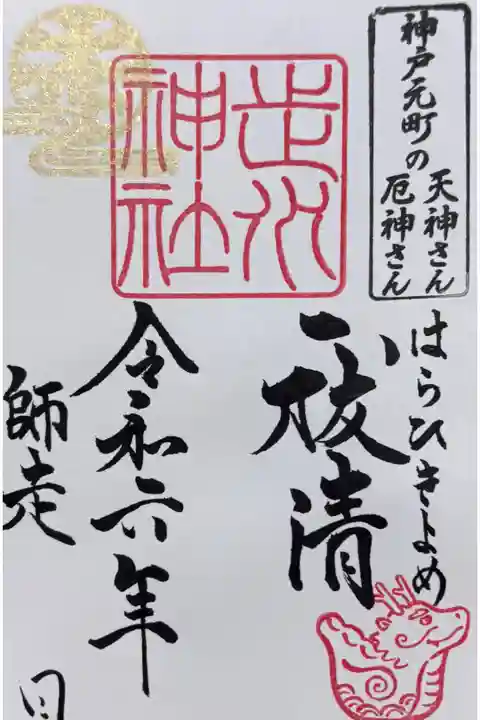 神戸元町の
天神さん
厄神さん
はらひきよめ
祓清
走水
神社
令和六年
師走 日